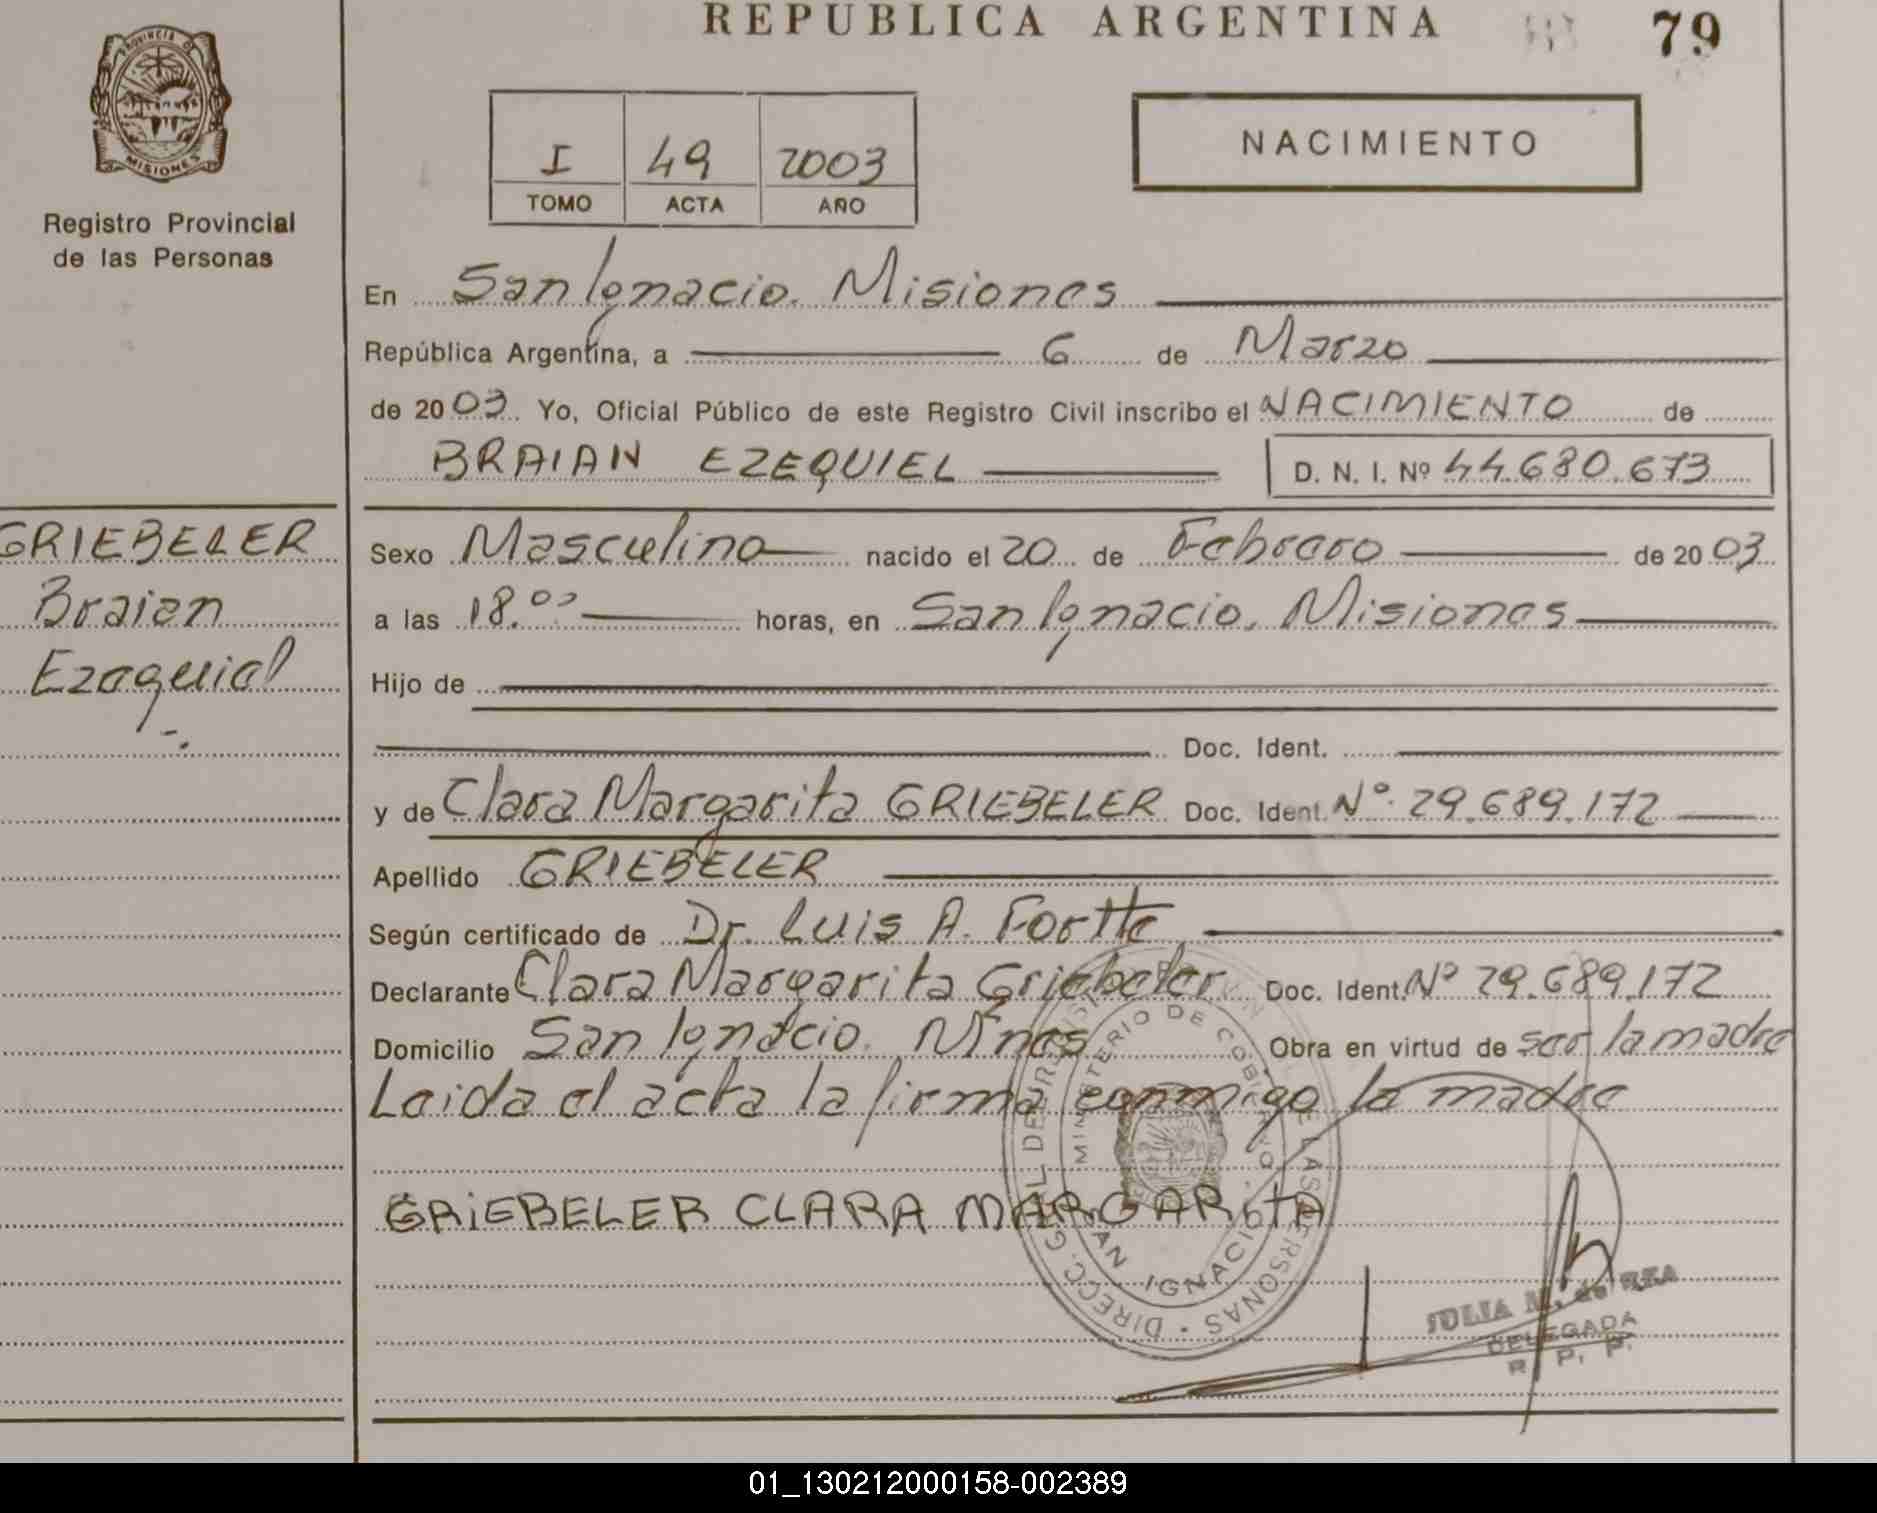 REPUBLICA ARGENTINA 79
PROVINCIA DE MISIONES
Registro Provincial
de las Personas
I 49 2003
TOMO ACTA AÑO
NACIMIENTO
En San Ignacio. Misiones
República Argentina, a 6 de Marzo
de 2003. Yo, Oficial Público de este Registro Civil inscribo el NACIMIENTO de
BRAIAN EZEQUIEL D. N. I. Nº 44.680.673
GRIEBELER
Braian
Ezequiel
Sexo Masculino nacido el 20 de Febrero de 2003
a las 18.00 horas, en San Ignacio. Misiones
Hijo de
Doc. Ident.
y de Clara Margarita GRIEBELER Doc. Ident. Nº 29.689.172
Apellido GRIEBELER
Según certificado de Dr. Luis A. Fortte
Declarante Clara Margarita Griebeler Doc. Ident. Nº 29.689.172
Domicilio San Ignacio. Mnes Obra en virtud de ser la madre
Leida el acta la firma conmigo la madre
GRIEBELER CLARA MARGARITA
MINISTERIO DE GOBIERNO
SAN IGNACIO
JULIA M. de REA
DELEGADA
R. P. P.
01_130212000158-002389